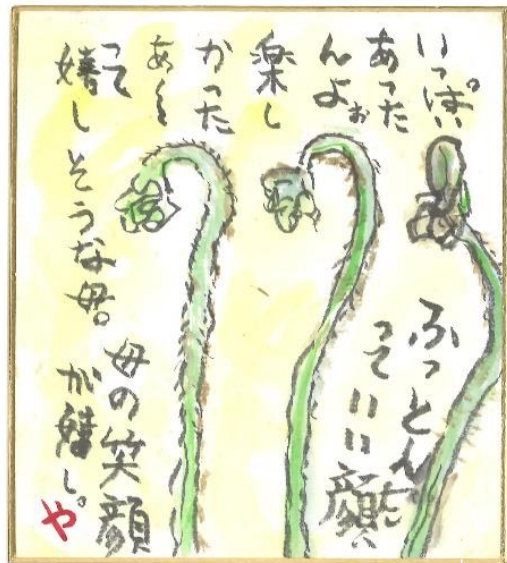 いっぱい
あった
んよぉ
楽し
かった
あ〜
って
嬉しそうな母。
母の笑顔
が嬉し。
や
ふっとん
っていい顔